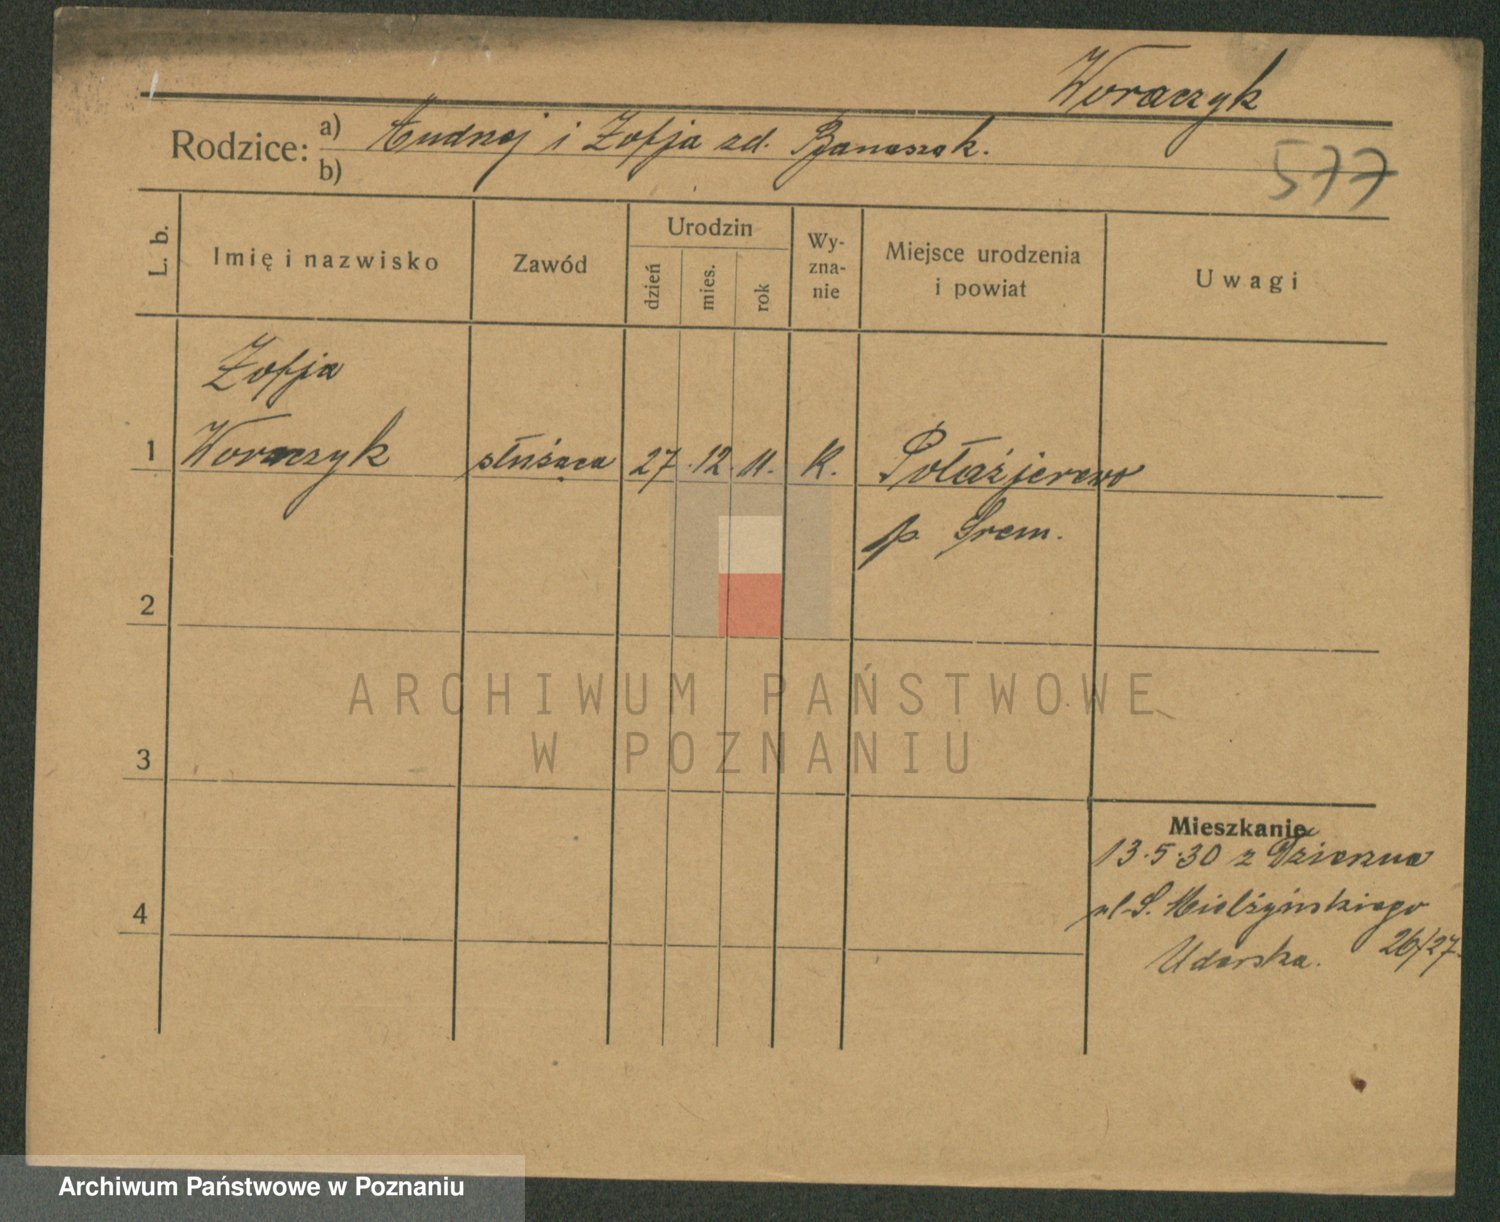 Woraczyk
Rodzice: a) Andrzej i Zofja zd. Banaszak.
b)
577
L. b.
Imię i nazwisko
Zawód
Urodzin
dzień
mies.
rok
Wy-
zna-
nie
Miejsce urodzenia
i powiat
Uwagi
Zofja
1 Woraczyk służąca 27. 12. 11. K. Polażjerewo
p. Śrem.
2
ARCHIWUM PAŃSTWOWE
W POZNANIU
3
Mieszkanie
13.5.30 z
ul. S. Mielżyńskiego
26/27.
4
Udarska.
Archiwum Państwowe w Poznaniu